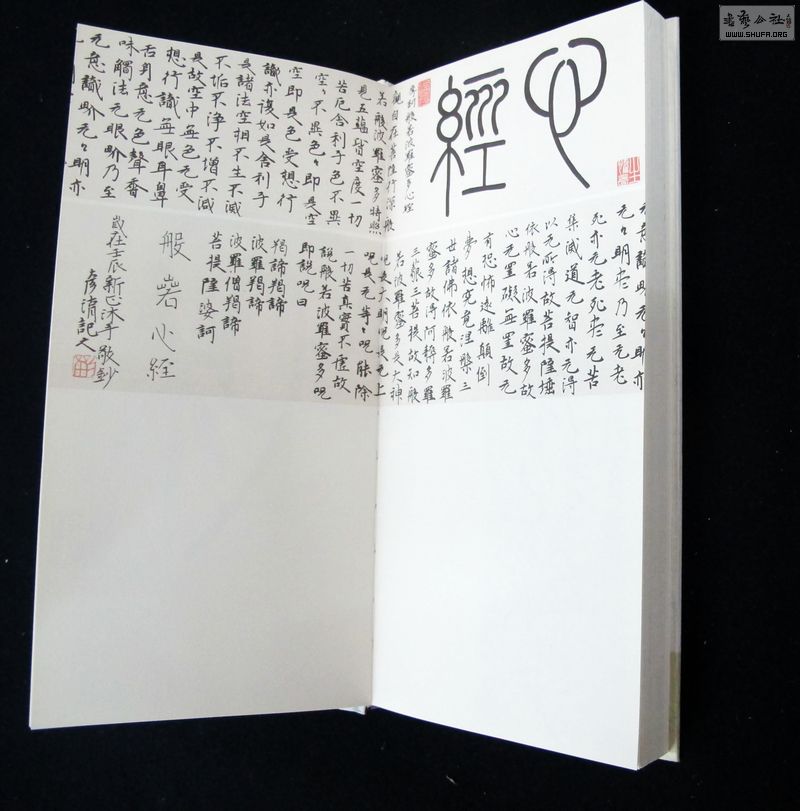 書法公社
WWW.SHUFA.ORG
心
經
般若波羅蜜多心經
觀自在菩薩行深般
若般波羅蜜多時照
見五蘊皆空度一切
苦厄舍利子色不異
空々不異色々即是空
空即是色受想行
識亦復如是舍利子
是諸法空相不生不滅
不垢不淨不增不減
是故空中無色无受
想行識無眼耳鼻
舌身意无色聲香
味觸法无眼界乃至
无意識界无々明亦
无意識界无々明亦
无々明盡乃至无老
死亦无老死盡无苦
集滅道无智亦无得
以无所得故菩提薩埵
依般若波羅蜜多故
心无罣礙無罣故无
有恐怖遠離顛倒
夢想究竟涅槃三
世諸佛依般若波羅
蜜多故得阿耨多羅
三藐三菩提故知般
若波羅蜜多是大神
呪是大明呪是无上
呪是无等々呪能除
一切苦真實不虛故
說般若波羅蜜多呪
即說呪曰
羯諦羯諦
波羅羯諦
波羅僧羯諦
菩提薩婆訶
般若心經
歲在壬辰新正沐手敬鈔
記之